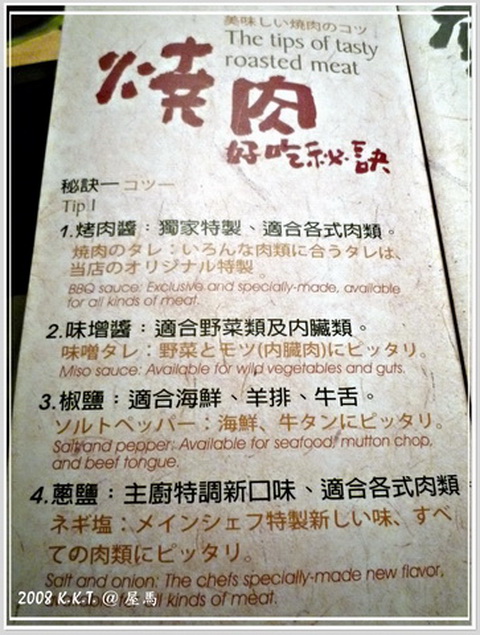 美味しい焼肉のコツ
The tips of tasty
roasted meat
燒肉
好吃秘訣
秘訣一 コツ一
Tip 1
1.烤肉醬：獨家特製、適合各式肉類。
焼肉のタレ：いろんな肉類に合うタレは、
当店のオリジナル特製。
BBQ sauce: Exclusive and specially-made, available
for all kinds of meat.
2.味增醬：適合野菜類及内臟類。
味噌タレ：野菜とモツ(内臓肉)にピッタリ。
Miso sauce: Available for wild vegetables and guts.
3.椒鹽：適合海鮮、羊排、牛舌。
ソルトペッパー：海鮮、牛タンにピッタリ。
Salt and pepper: Available for seafood, mutton chop,
and beef tongue.
4.蔥鹽：主廚特調新口味、適合各式肉類
ネギ塩：メインシェフ特製新しい味、すべ
ての肉類にピッタリ。
Salt and onion: The chefs specially-made new flavor,
for all kinds of meat.
2008 K.K.T. @ 屋馬